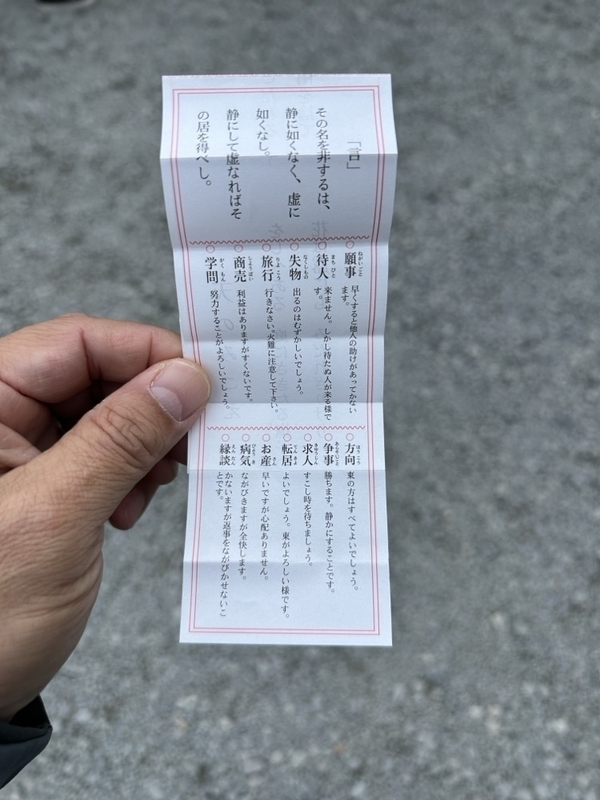 「言」
その名を非するは、
静に如くなく、虚に
如くなし。
静にして虚なればそ
の居を得べし。
願事 ねがいごと 早くすると他人の助けがあってかない
ます。
待人 まちびと 来ません。しかし待たぬ人が来る様で
す。
失物 なくしもの 出るのはむずかしいでしょう。
旅行 りょこう 行きなさい。火難に注意して下さい。
商売 しょうばい 利益はありますがすくないです。
学問 がくもん 努力することがよろしいでしょう。
方向 ほうこう 東の方はすべてよいでしょう。
争事 あらそいごと 勝ちます。静かにすることです。
求人 きゅうじん すこし時を待ちましょう。
転居 てんきょ よいでしょう。東がよろしい様です。
お産 さん 早いですが心配ありません。
病気 びょうき ながびきますが全快します。
縁談 えんだん かないますが返事をながびかせないこ
とです。